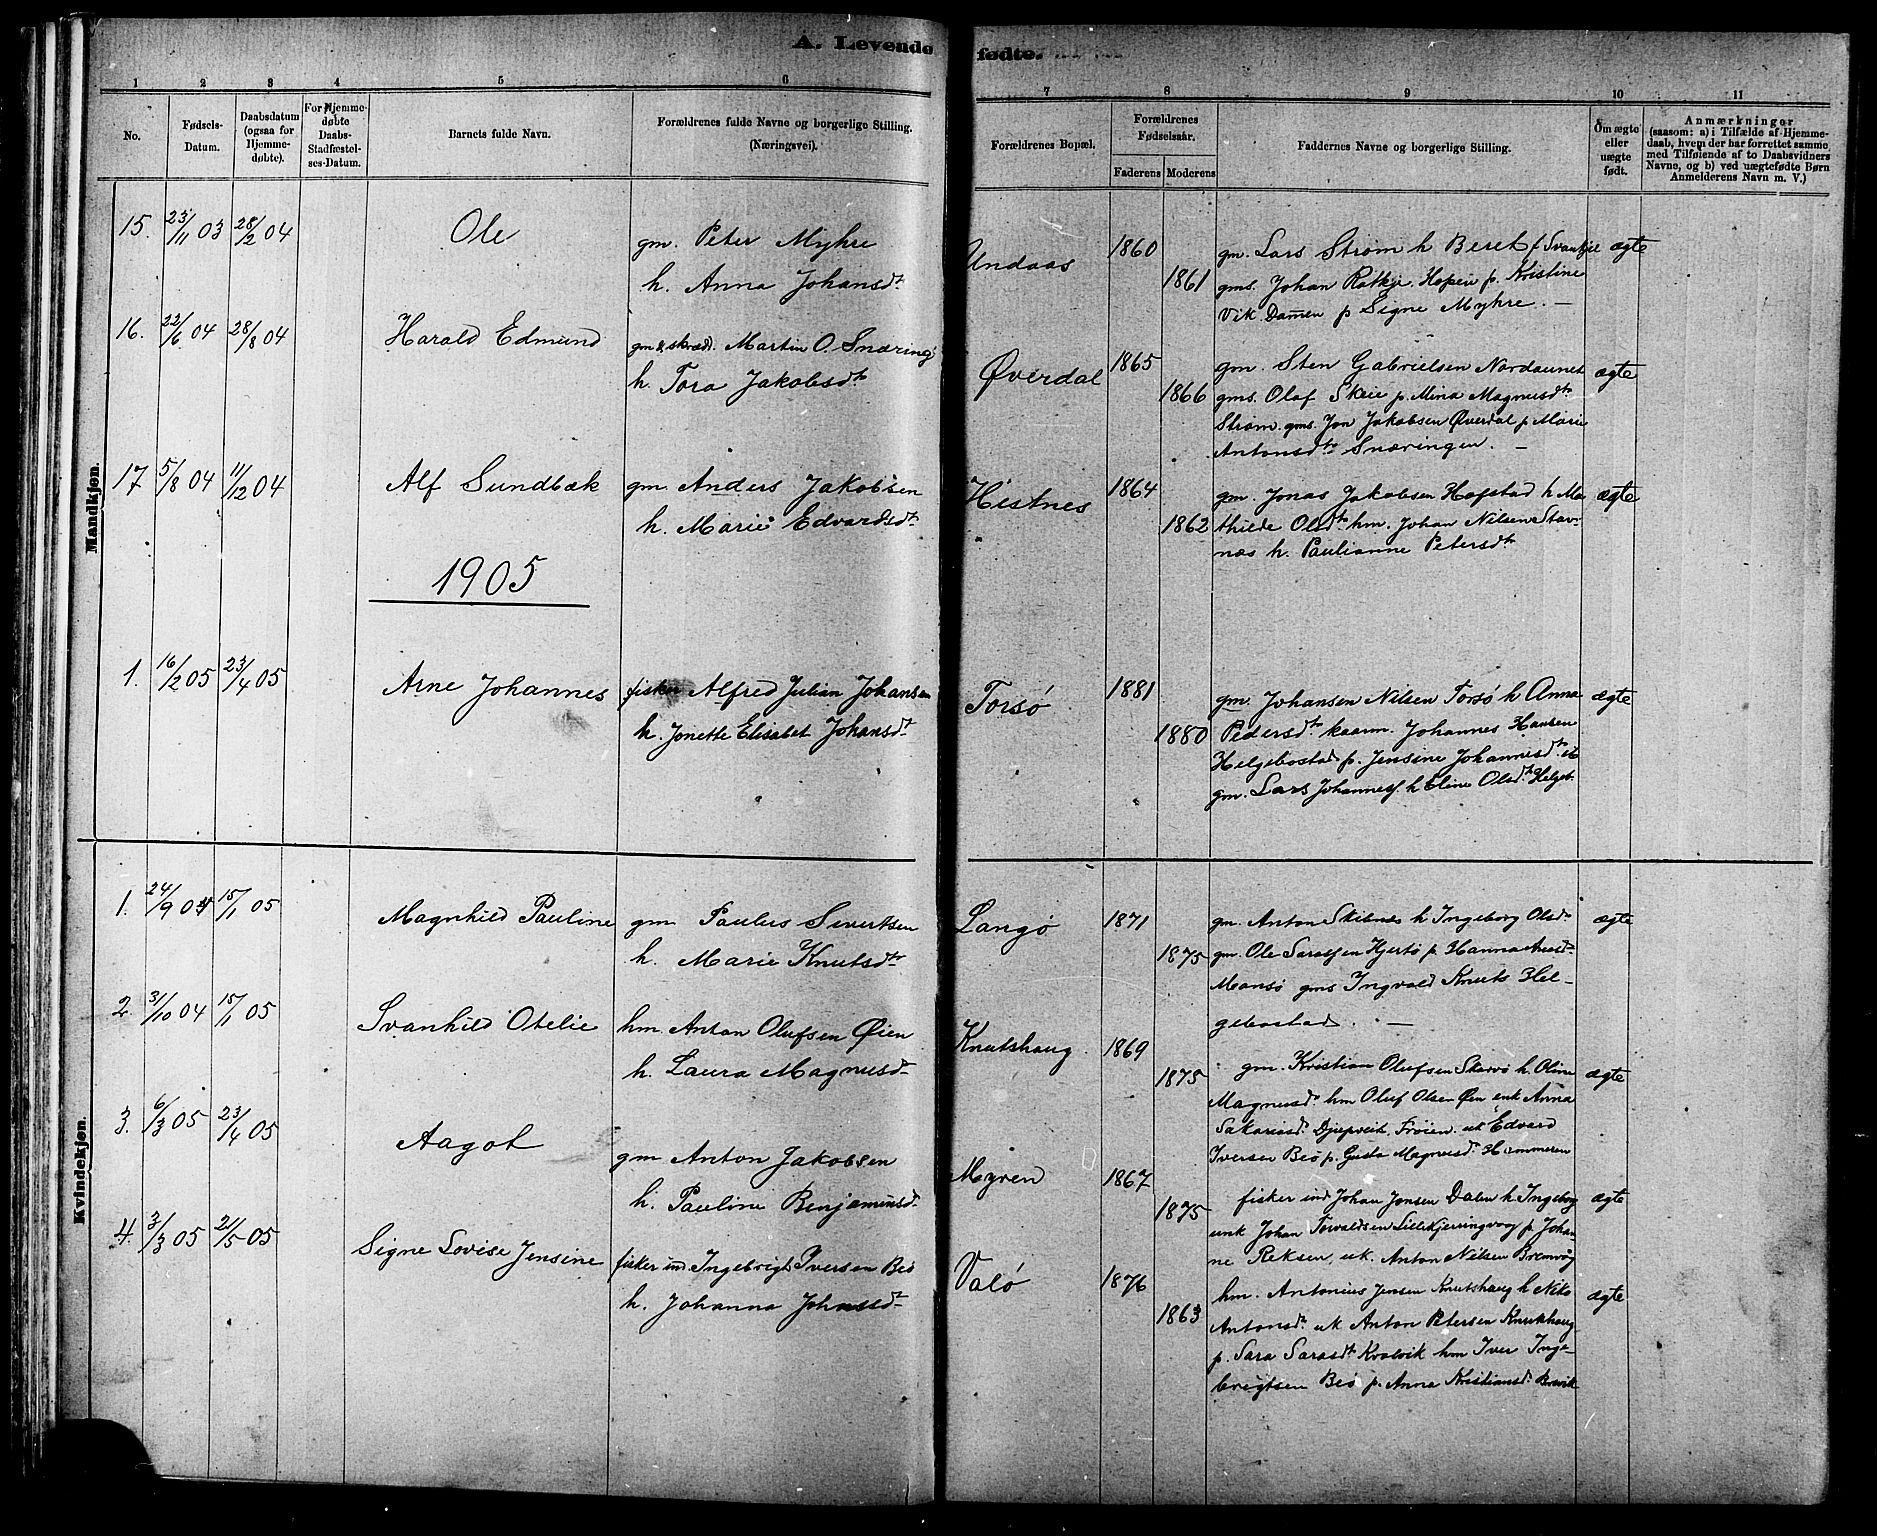 A. Levende fødte.
1 2 3 4 5 6 7 8 9 10 11
No.
Fødsels-
Datum.
Daabsdatum
(ogsaa for
Hjemme-
døbte).
For Hjemme-
døbte
Daabs-
Stadfæstel-
ses-Datum.
Barnets fulde Navn.
Forældrenes fulde Navne og borgerlige Stilling.
(Næringsvei).
Forældrenes Bopæl.
Forældrenes
Fødselsaar.
Faderens Moderens
Faddernes Navne og borgerlige Stilling.
Om ægte
eller
uægte
født.
Anmærkninger
(saasom: a) i Tilfælde af Hjemme-
daab, hvem der har forrettet samme,
med Tilføiende af to Daabsvidners
Navne, og b) ved uægtefødte Børn
Anmelderens Navn m. V.)
Mandkjøn.
15. 23/11 03 28/2 04 Ole gm. Peter Myhre
h. Anna Johansdt
Undaas 1860 1861
gm. Lars Strøm h Beret f Svankje ægte
gms. Johan Røtkje Hopen p. Kristine
Vik Damen p Signe Myhre. —
16. 22/6 04 28/8 04 Harald Edmund gm & skræd. Martin O. Snæring
h. Tora Jakobsdt
Øverdal 1865 1866
gm. Sten Gabrielsen Nordaunet ægte
gms. Olaf Skeie p. Mina Magnusdt
Strøm. gms. Jon Jakobsen Øverdal p Marie
Antonsdt Snæringen. —
17 5/8 04 11/12 04 Alf Sundbæk gm Anders Jakobsen
h. Marie Edvardsdt
Hestnes 1864 1862
gm. Jonas Jakobsen Hofstad h Ma ægte
thilde Olsdt hm. Johan Nilsen Stav-
næs h. Paulianne Petersdt
1905
1. 16/2 05 23/4 05 Arne Johannes fisker Alfred Julian Johansen
h. Jonette Elisabet Johansdt
Torsø 1881 1880
gm. Johansen Nilsen Torsø h Anna ægte
Pedersdt kaarm. Johannes Hansen
Helgebostad p. Jensine Johannesdt
gm. Lars Johannes h Eline Olsdt Helgeb.
Kvindekjøn.
1. 24/9 04 15/1 05 Magnhild Pauline gm Paulus Sivertsen
h. Marie Knutsdt
Langø 1871 1875
gm. Anton Skibnes h Ingeborg Olsdt ægte
gm. Ole Hjertø p. Hanna
Mansø gms Ingvald Knuts Hel-
gebostad. —
2 3/10 04 15/1 05 Svanhild Otelie hm. Anton Olufsen Øien
h. Laura Magnusdt
Knutshaug 1869 1875
gm. Kristian Olufsen Skarvø h. Oline ægte
Magnusdt hm Oluf Olsen Øien enk Anna
Sakariasdt Djupveit, Frøien. uk Edvard
Iversen Beø p. Gusta Magnusdt Hammeren
3. 6/3 05 23/4 05 Aagot gm Anton Jakobsen
h. Pauline Benjaminsdt
Myren 1867 1875
fisker ind Johan Jensen Dalen h Ingeborg ægte
unk Johan Torvaldsen Lillekjerringvog p. Johan-
ne Reksen, uk. Anton Nilsen Bremvåg
4. 3/3 05 21/5 05 Signe Lovise Jensine fisker ind Ingebrigt Iversen Beø
h. Johanna Johnsdt
Valø 1876 1863
hm. Antonius Jensen Knutshaug h Nike ægte
Antonsdt uk Anton Petersen Knutshaug
p. Sara Sarasdt Kvalvik hm Iver Inge-
brigtsen Beø p. Anna Kristiansdt Brevik